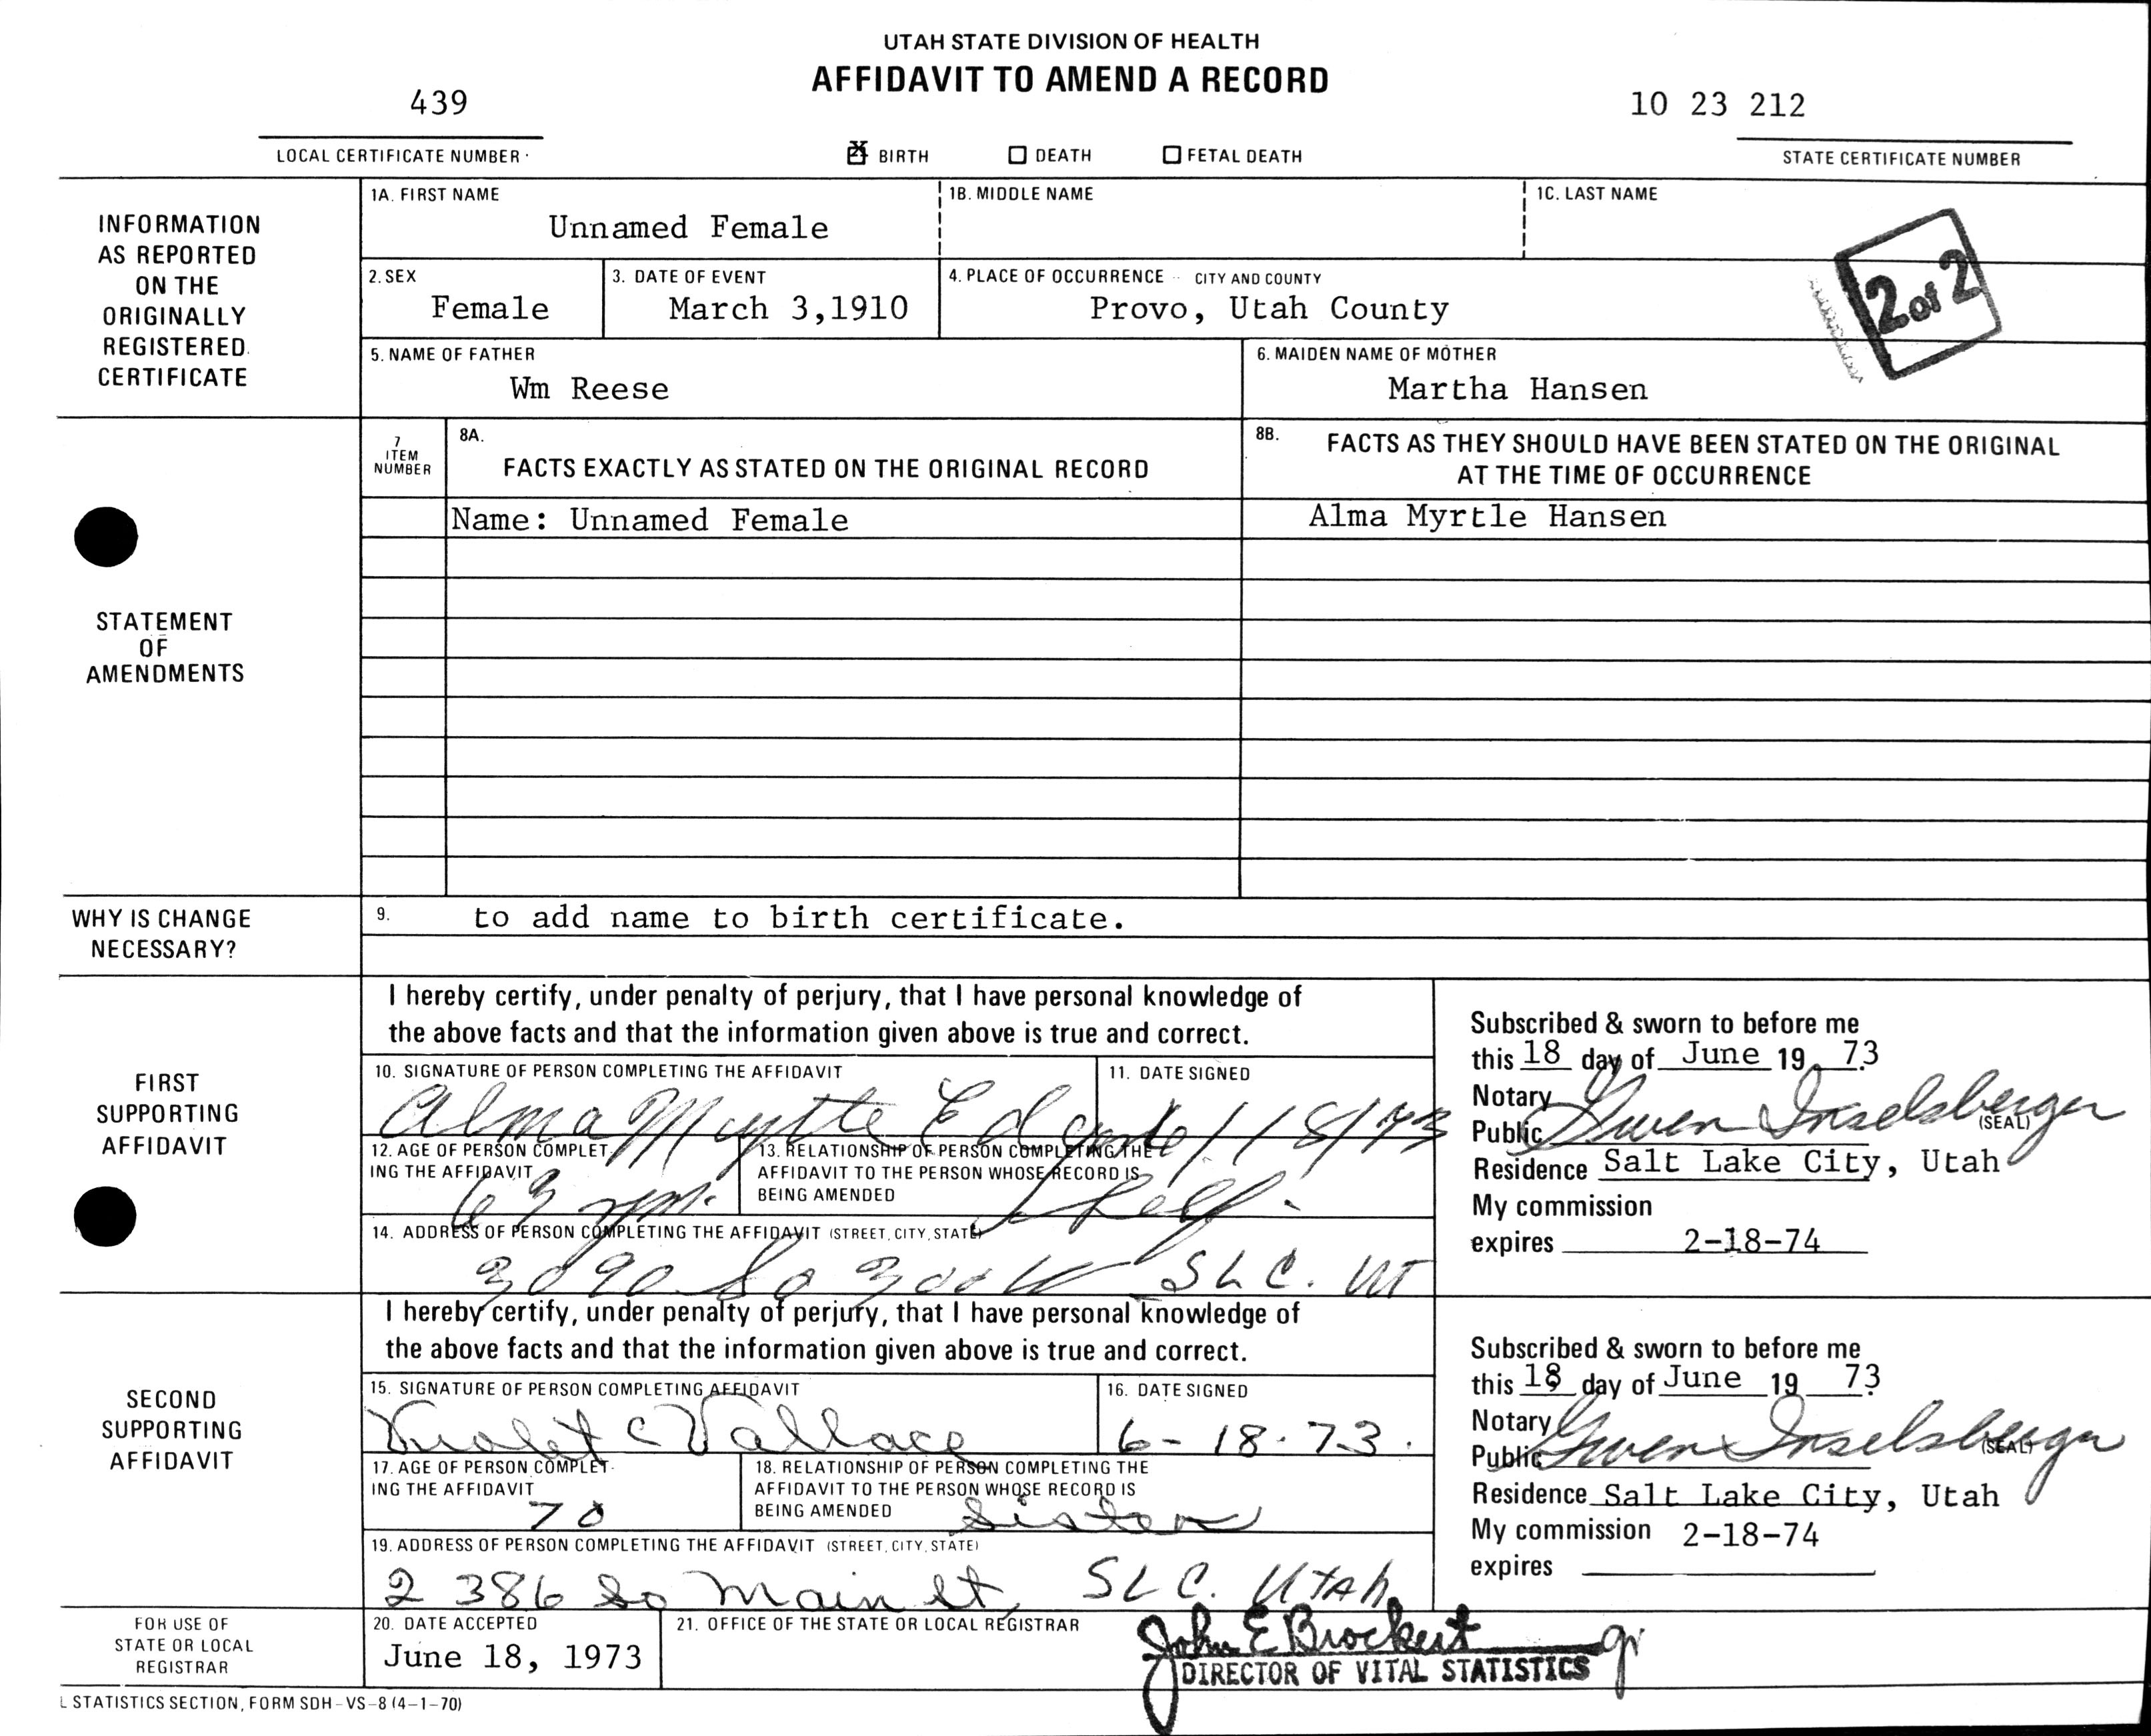 UTAH STATE DIVISION OF HEALTH
AFFIDAVIT TO AMEND A RECORD
439
10 23 212
LOCAL CERTIFICATE NUMBER
X BIRTH DEATH FETAL DEATH
STATE CERTIFICATE NUMBER
INFORMATION
AS REPORTED
ON THE
ORIGINALLY
REGISTERED
CERTIFICATE
1A. FIRST NAME
Unnamed Female
1B. MIDDLE NAME
1C. LAST NAME
2 of 2
2. SEX
Female
3. DATE OF EVENT
March 3,1910
4. PLACE OF OCCURRENCE -- CITY AND COUNTY
Provo, Utah County
5. NAME OF FATHER
Wm Reese
6. MAIDEN NAME OF MOTHER
Martha Hansen
STATEMENT
OF
AMENDMENTS
7
ITEM
NUMBER
8A.
FACTS EXACTLY AS STATED ON THE ORIGINAL RECORD
8B. FACTS AS THEY SHOULD HAVE BEEN STATED ON THE ORIGINAL
AT THE TIME OF OCCURRENCE
Name: Unnamed Female
Alma Myrtle Hansen
WHY IS CHANGE
NECESSARY?
9. to add name to birth certificate.
FIRST
SUPPORTING
AFFIDAVIT
I hereby certify, under penalty of perjury, that I have personal knowledge of
the above facts and that the information given above is true and correct.
10. SIGNATURE OF PERSON COMPLETING THE AFFIDAVIT
Alma Myrtle
11. DATE SIGNED
6/18/73
12. AGE OF PERSON COMPLET-
ING THE AFFIDAVIT
63 yrs.
13. RELATIONSHIP OF PERSON COMPLETING THE
AFFIDAVIT TO THE PERSON WHOSE RECORD IS
BEING AMENDED
Self.
14. ADDRESS OF PERSON COMPLETING THE AFFIDAVIT (STREET, CITY, STATE)
3090 So 300 W SLC. UT
Subscribed & sworn to before me
this 18 day of June 19 73
Notary
Public Gwen Inselsberger
(SEAL)
Residence Salt Lake City, Utah
My commission
expires 2-18-74
SECOND
SUPPORTING
AFFIDAVIT
I hereby certify, under penalty of perjury, that I have personal knowledge of
the above facts and that the information given above is true and correct.
15. SIGNATURE OF PERSON COMPLETING AFFIDAVIT
Violet C Wallace
16. DATE SIGNED
6-18-73.
17. AGE OF PERSON COMPLET-
ING THE AFFIDAVIT
70
18. RELATIONSHIP OF PERSON COMPLETING THE
AFFIDAVIT TO THE PERSON WHOSE RECORD IS
BEING AMENDED
Sister
19. ADDRESS OF PERSON COMPLETING THE AFFIDAVIT (STREET, CITY, STATE)
2386 So Main St, SLC. Utah
Subscribed & sworn to before me
this 18 day of June 19 73
Notary
Public Gwen Inselsberger
(SEAL)
Residence Salt Lake City, Utah
My commission 2-18-74
expires
FOR USE OF
STATE OR LOCAL
REGISTRAR
20. DATE ACCEPTED
June 18, 1973
21. OFFICE OF THE STATE OR LOCAL REGISTRAR
John E Brockert
DIRECTOR OF VITAL STATISTICS
L STATISTICS SECTION, FORM SDH-VS-8 (4-1-70)